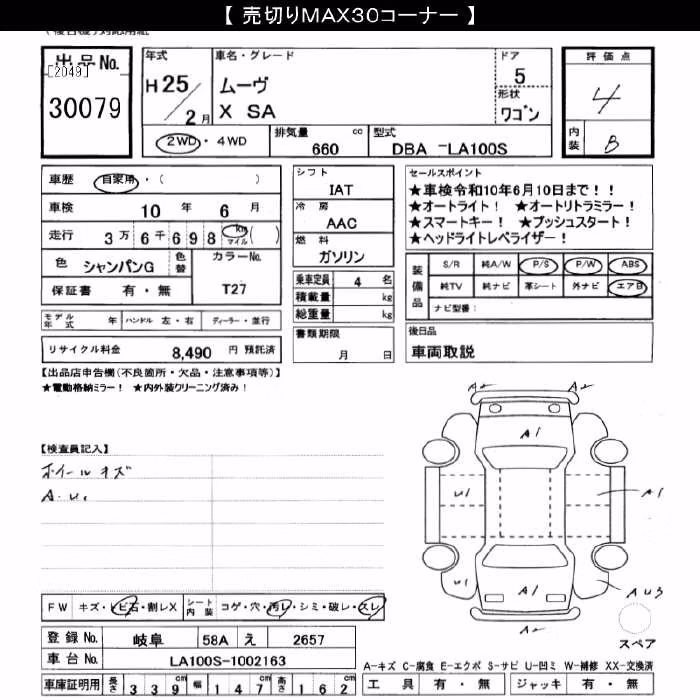 【 売切りMAX30コーナー 】
出品No.
[2049]
30079
年式
H25/2月
車名・グレード
ムーヴ
X SA
ドア
5
形状
ワゴン
評価点
4
内装
B
2WD・4WD
排気量
660 cc
型式
DBA −LA100S
車歴 自家用・( )
車検 10 年 6 月
走行 3万6千698 km マイル ( )
色 シャンパンG 色替
カラーNo.
T27
保証書 有・無
モデル年式 年 ハンドル 左・右 ディーラー・並行
リサイクル料金 8,490 円 預託済
シフト
IAT
冷房
AAC
燃料
ガソリン
乗車定員 4 名
積載量 kg
総重量 kg
書類期限
月 日
セールスポイント
★車検令和10年6月10日まで！！
★オートライト！ ★オートリトラミラー！
★スマートキー！ ★プッシュスタート！
★ヘッドライトレベライザー！
装備品
S/R 純A/W P/S P/W ABS
純TV 純ナビ 革シート 外ナビ エアB
ナビ型番：
後日品
車両取説
【出品店申告欄(不良箇所・欠品・注意事項等)】
★電動格納ミラー！ ★内外装クリーニング済み！
【検査員記入】
ホイールキズ
A.U.
A2 A2
A1
U1 A1
U1 A1 AU3
A2
スペア
FW キズ・トビ石・割レX シート内装 コゲ・穴・汚レ・シミ・破レ・スレ
登録No. 岐阜 58A え 2657
車台No. LA100S-1002163
車庫証明用 長さ 339cm 幅 147cm 高さ 162cm
A-キズ C-腐食 E-エクボ S-サビ U-凹ミ W-補修 XX-交換済
工具 有・無 ジャッキ 有・無